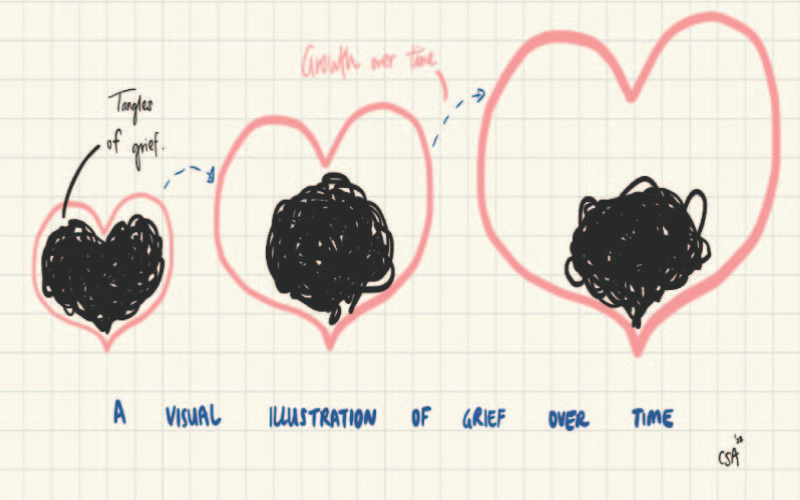 Growth over time
Tangles
of grief.
A VISUAL ILLUSTRATION OF GRIEF OVER TIME
CSA